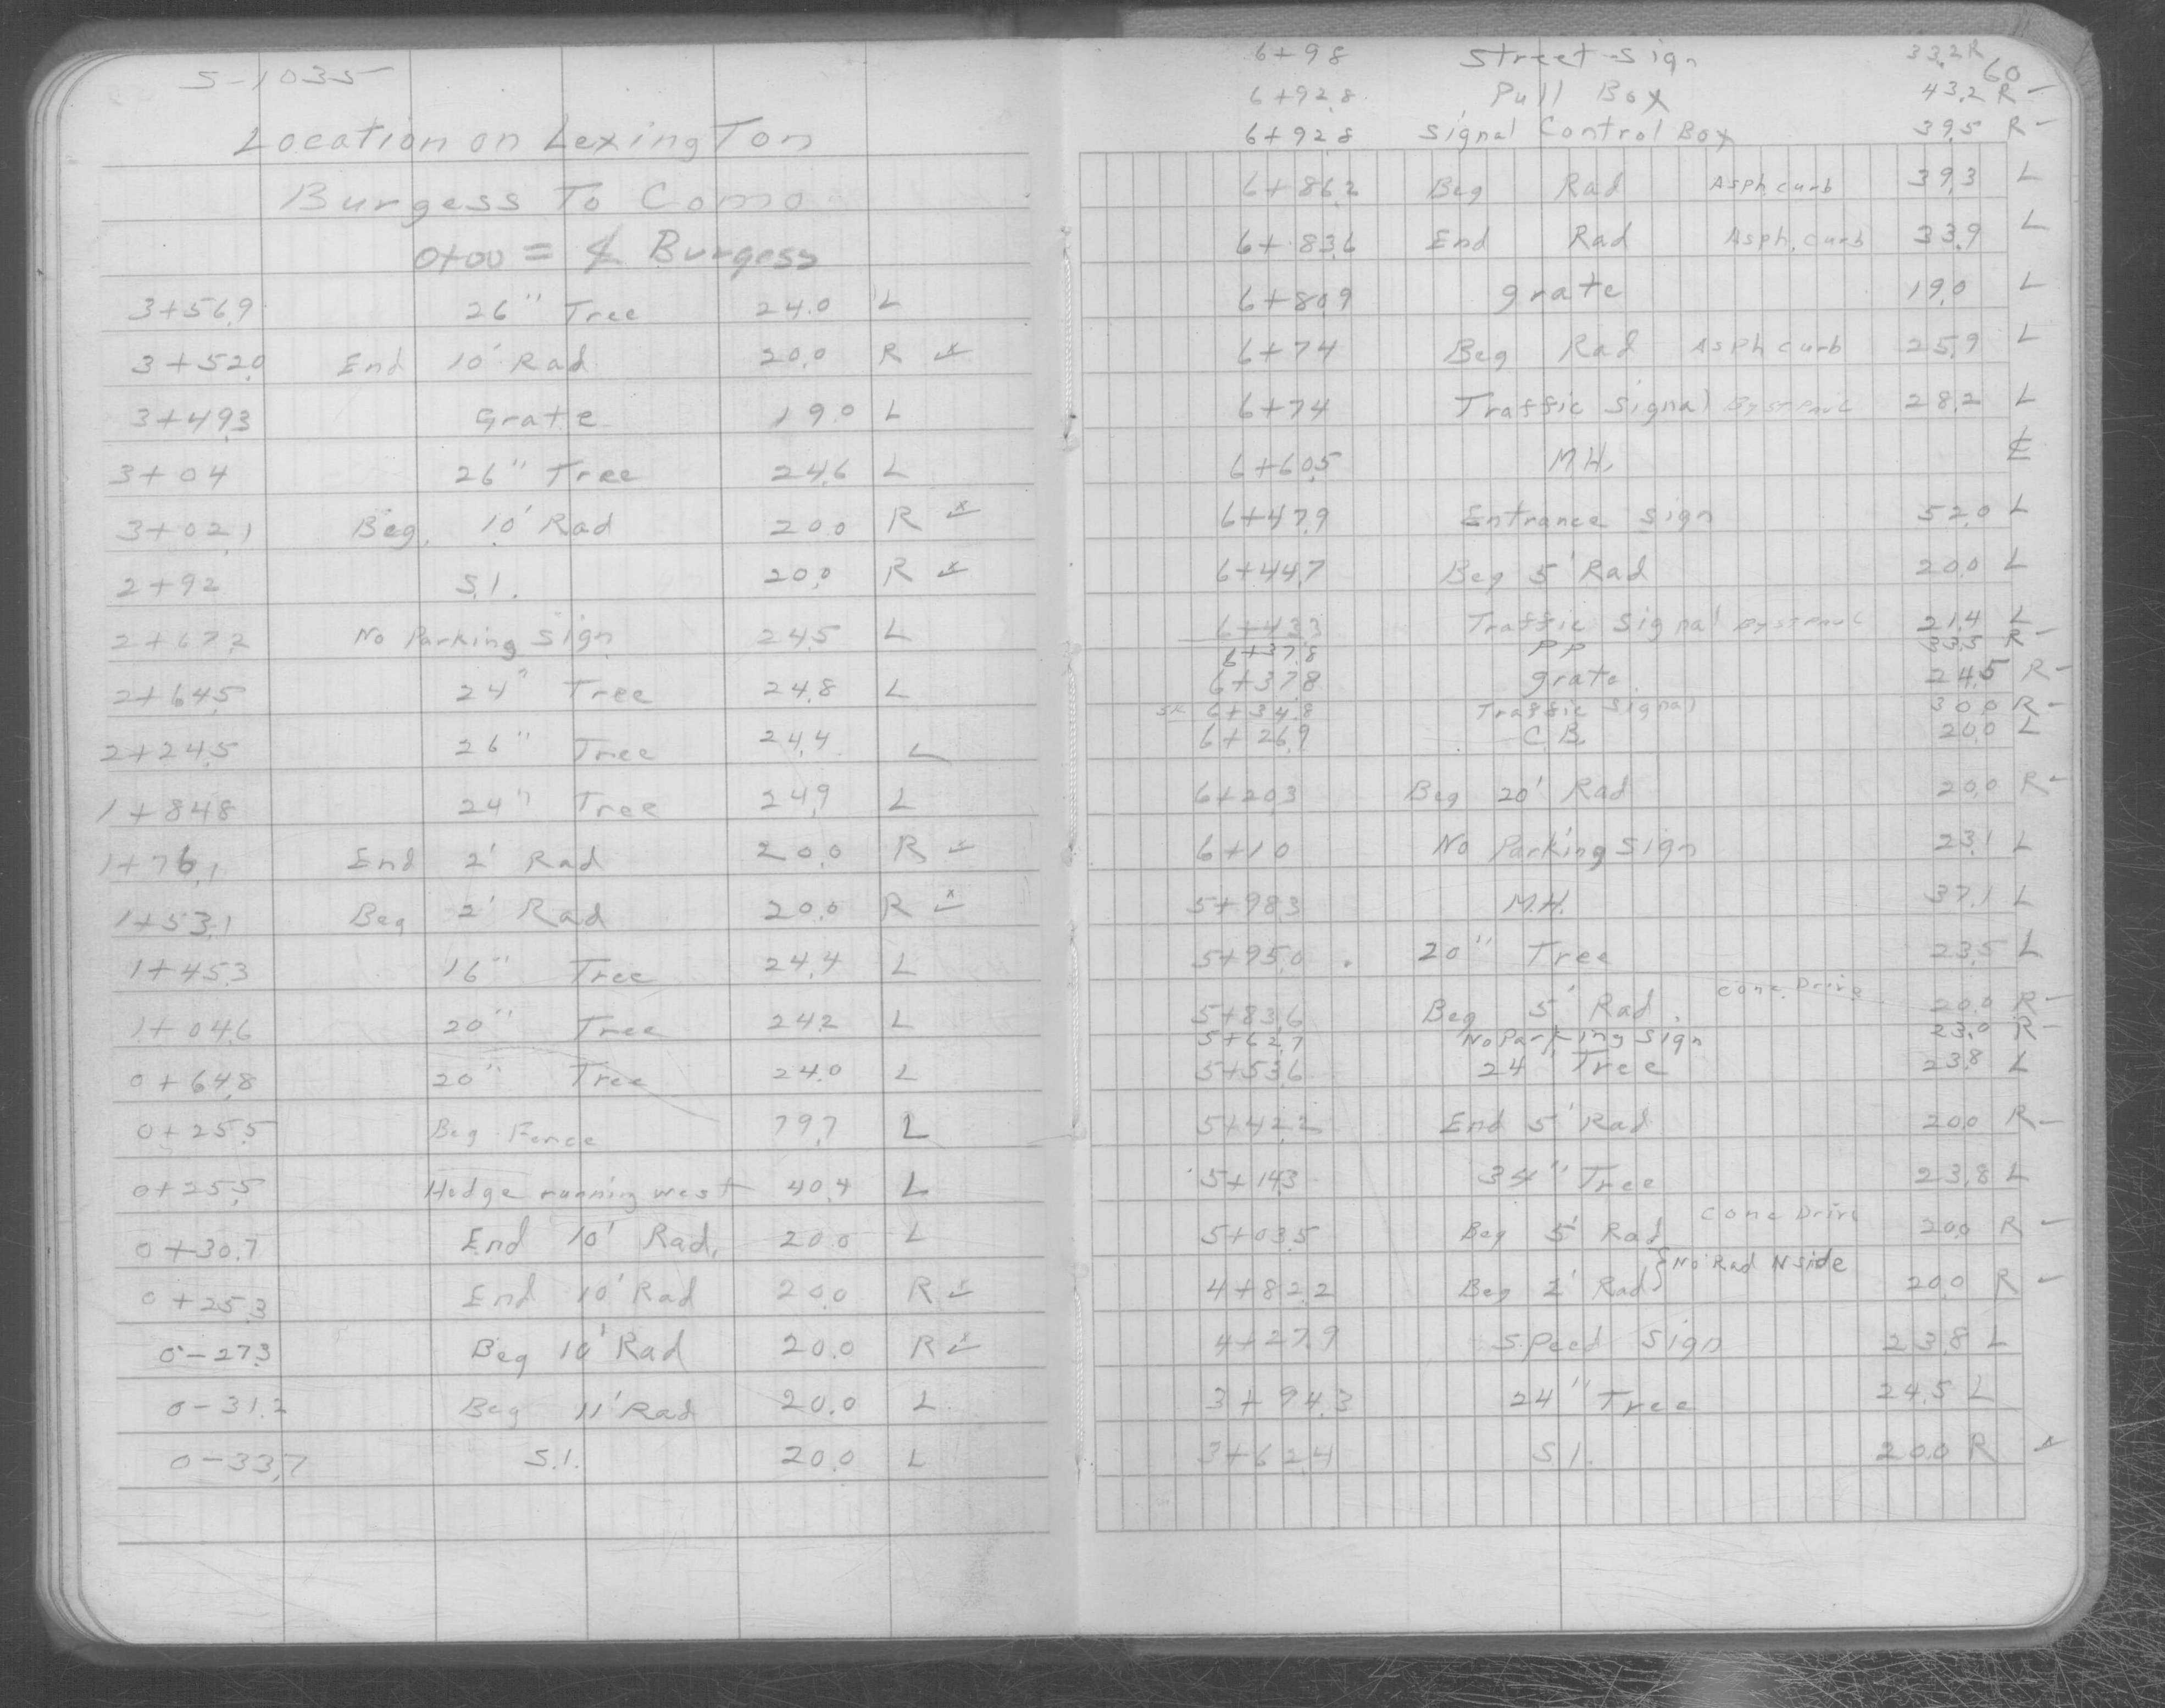 S-1035
Location on Lexington
Burgess To Como
0+00 = ℄ Burgess
3+56.9 26" Tree 24.0 L
3+52.0 End 10' Rad 20.0 R
3+49.3 Grate 19.0 L
3+04 26" Tree 24.6 L
3+02.1 Beg. 10' Rad 20.0 R
2+92 S.I. 20.0 R
2+67.2 No Parking Sign 24.5 L
2+64.5 24" Tree 24.8 L
2+24.5 26" Tree 24.4 L
1+84.8 24" Tree 24.9 L
1+76.1 End 2' Rad 20.0 R
1+53.1 Beg 2' Rad 20.0 R
1+45.3 16" Tree 24.4 L
1+04.6 20" Tree 24.2 L
0+64.8 20" Tree 24.0 L
0+25.5 Beg Fence 79.7 L
0+25.5 Hedge running west 40.4 L
0+30.7 End 10' Rad. 20.0 L
0+25.3 End 10' Rad 20.0 R
0-27.3 Beg 10' Rad 20.0 R
0-31.2 Beg 11' Rad 20.0 L
0-33.7 S.I. 20.0 L
60
6+98 Street Sign 33.2 R
6+92.8 Pull Box 43.2 R -
6+92.8 Signal Control Box 39.5 R -
6+86.2 Beg Rad Asph curb 39.3 L
6+83.6 End Rad Asph. curb 33.9 L
6+80.9 grate 19.0 L
6+74 Beg Rad Asph curb 25.9 L
6+74 Traffic Signal By St Paul 28.2 L
6+60.5 M.H. ℄
6+47.9 Entrance Sign 52.0 L
6+44.7 Beg 5' Rad 20.0 L
6+43.3 Traffic Signal By St Paul 21.4 L
6+37.8 PP 33.5 R -
6+37.8 grate 24.5 R -
6+34.8 Traffic Signal 30.0 R -
6+26.9 C.B. 20.0 L
6+20.3 Beg 20' Rad 20.0 R -
6+10 No Parking Sign 23.1 L
5+98.3 M.H. 37.1 L
5+95.0 20" Tree 23.5 L
5+83.6 Beg 5' Rad. conc. Drive 20.0 R -
5+62.7 No Parking Sign 23.0 R -
5+53.6 24 Tree 23.8 L
5+42.2 End 5' Rad 20.0 R -
5+14.3 34" Tree 23.8 L
5+03.5 Beg 5' Rad conc Drive 20.0 R -
{No Rad N side
4+82.2 Beg 2' Rad 20.0 R -
4+27.9 Speed Sign 23.8 L
3+94.3 24" Tree 24.5 L
3+62.4 S I. 20.0 R